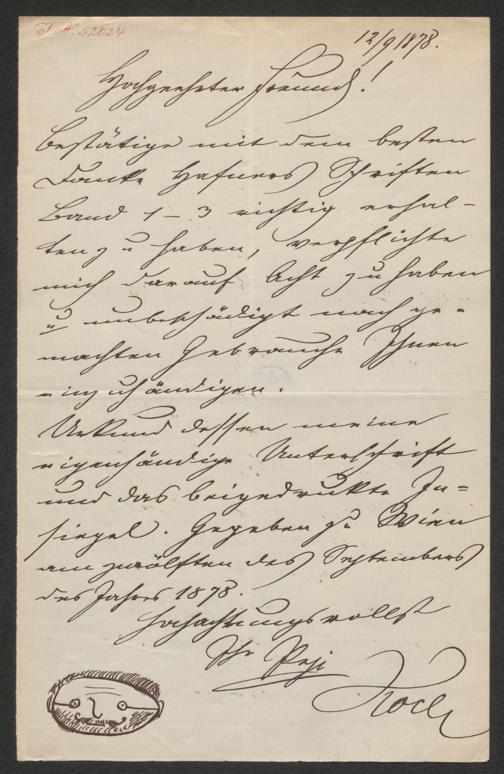 J. N. 52024
12/9 1878.
Hochgeehrter Freund!
Bestätige mit dem besten
Danke Hafners Schriften
Band 1 – 3 richtig erhal-
ten zu haben, verpflichte
mich darauf Acht zu haben
u unbeschädigt nach ge-
machten Gebrauche Ihnen
einzuhändigen.
Urkund dessen meine
eigenhändige Unterschrift
und das beigedruckte In-
siegel. Gegeben zu Wien
am zwölften des Septembers
des Jahres 1878.
Hochachtungsvollst
Ihr Pepi
Koch